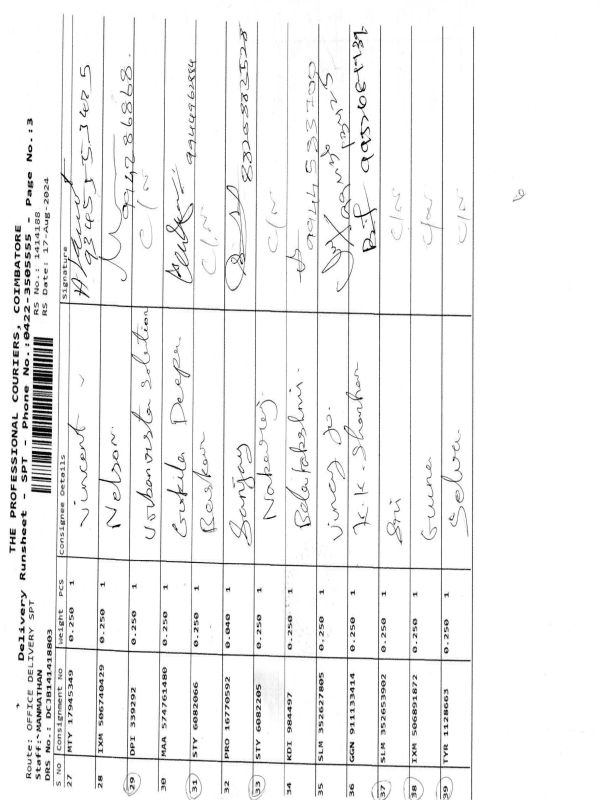 THE PROFESSIONAL COURIERS, COIMBATORE
Delivery Runsheet - SPT - Phone No.:0422-3505555 - Page No.:3
Route: OFFICE DELIVERY SPT RS No.: 1414188
Staff:-MANMATHAN RS Date: 17-Aug-2024
DRS No.: DCJB141418803
S No Consignment No Weight PCS Consignee Details Signature
27 MTY 17945349 0.250 1 Vincent 9345553485
28 IXM 506740429 0.250 1 Nelson 9942286868.
29 DPI 339292 0.250 1 Urbanvista Solution C/N
30 MAA 574761480 0.250 1 Gokila Deepa 9944962884
31 STY 6082066 0.250 1 Baskar C/N
32 PRO 16770592 0.040 1 Sanjay 8825882528
33 STY 6082205 0.250 1 C/N
34 KDI 984497 0.250 1 Balalakshmi. 9944533700
35 SLM 352627805 0.250 1
36 GGN 911133414 0.250 1 K.K. Shankar
37 SLM 352653902 0.250 1 Sri C/N
38 IXM 506891872 0.250 1 Guna C/N
39 TYR 1128663 0.250 1 Selva C/N